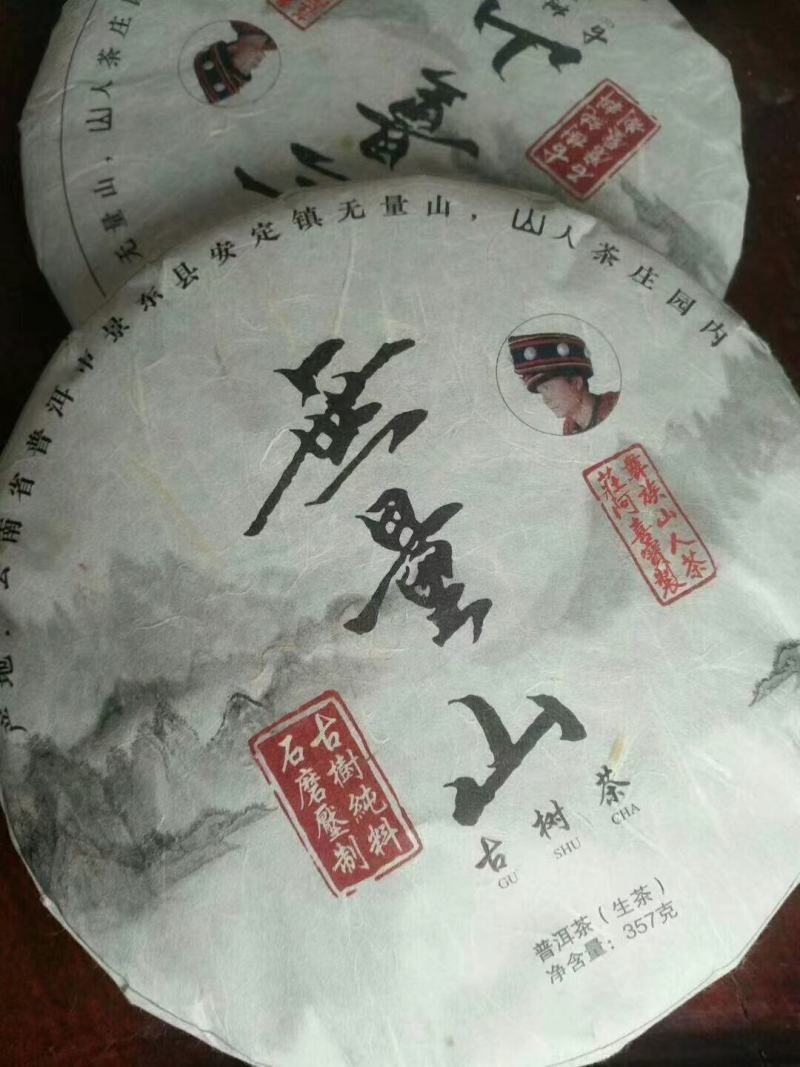 无量山，山人茶庄园
量
山
产地：云南省普洱市景东县安定镇无量山，山人茶庄园内
無
量
山
彝族山人茶
莊阿喜寶製
古樹純料
石磨壓制
古树茶
GU SHU CHA
普洱茶（生茶）
净含量：357克